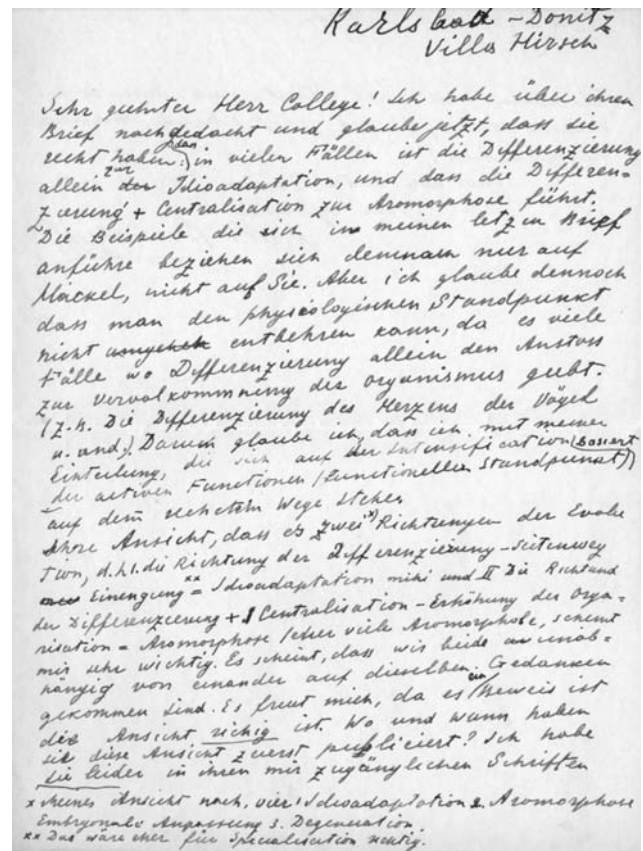 Karlsbad – Donitz
Villa Hirsch
Sehr geehrter Herr College! Ich habe über ihren
Brief nachgedacht und glaube jetzt, dass sie
recht haben: dass in vielen Fällen ist die Differenzierung
allein zur Idioadaptation, und dass die Differen=
zierung + Centralisation zur Aromorphose führt.
Die Beispiele die sich in meinen letzen Brief
anführe beziehen sich demnach nur auf
Häckel, nicht auf Sie. Aber ich glaube dennoch
dass man den physiologischen Standpunkt
nicht entbehren kann, da es viele
Fälle wo Differenzierung allein den Anstoss
zur Vervolkommnung des Organismus giebt.
(z.B. Die Differenzierung des Herzens der Vögel
u. and.). Darum glaube ich, dass ich mit meiner
Einteilung, die sich auf der Intensification (basiert
der activen Functionen (functionellen Standpunkt))
auf dem rechten Wege stehe.
Ihre Ansicht, dass es zwei x) Richtungen der Evolu
tion, d.h. I. die Richtung der Differenzierung – Seitenweg
Einengung xx = Idioadaptation mihi und II Die Richtung
der Differenzierung + Centralisation – Erhöhung der Orga=
nisation = Aromorphose (eher viele Aromorphose, scheint
mir sehr wichtig. Es scheint, dass wir beide unab=
hängig von einander auf dieselben Gedanken
gekommen sind. Es freut mich, da es ein Beweis ist
die Ansicht richig ist. Wo und wann haben
sie diese Ansicht zuerst publiciert? Ich habe
sie leider in ihren mir zugänglichen Schriften
x Meines Ansicht nach, vier: 1 Idioadaptation 2. Aromorphose
Embryonale Anpassung 3. Degeneration.
xx Das wäre eher für Specialisation richtig.